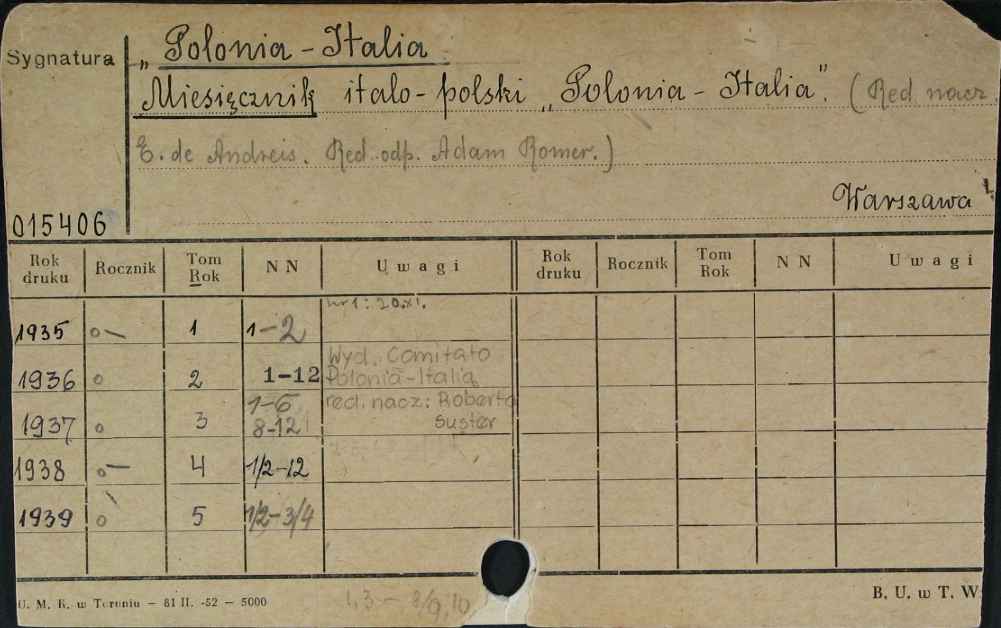 Sygnatura
„Polonia - Italia
Miesięcznik italo-polski „Polonia - Italia”. (Red nacz.
E. de Andreis. Red. odp. Adam Romer.)
Warszawa
015406
Rok druku Rocznik Tom Rok NN Uwagi Rok druku Rocznik Tom Rok NN Uwagi
nr 1: 20.XI.
1935 o— 1 1-2
Wyd. Comitato
1936 o 2 1-12 Polonia-Italia
1937 o 3 1-6 red. nacz: Roberto
8-12 Suster
1938 o— 4 1/2-12
1939 o 5 1/2-3/4
U. M. K. w Toruniu — 81 II. -52 — 5000
1, 3 — 8/9, 10
B. U. w T. W